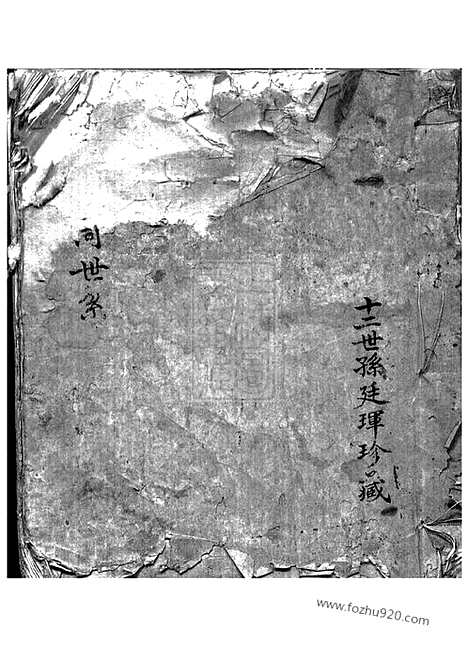 十二世孫廷琿珍藏
世系
www.fozhu920.com